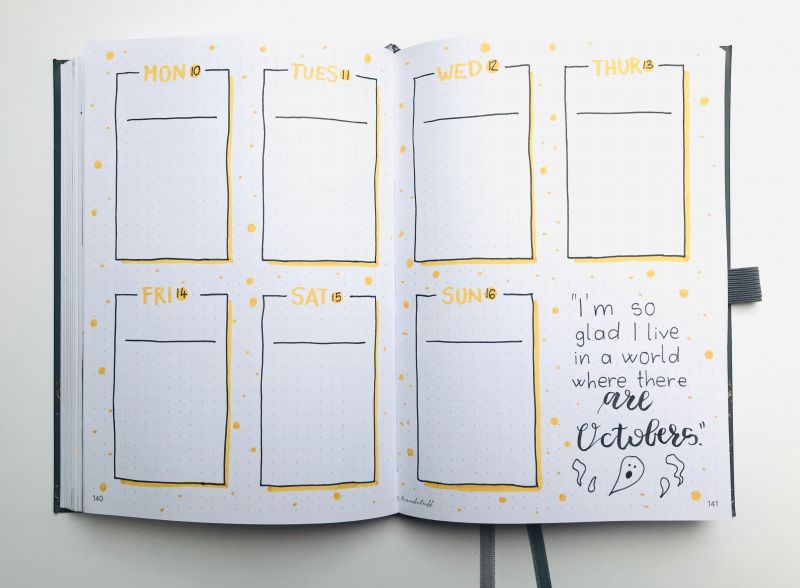 MON 10
TUES 11
WED 12
THUR 13
FRI 14
SAT 15
SUN 16
"I'm so
glad I live
in a world
where there
are
Octobers."
140
141